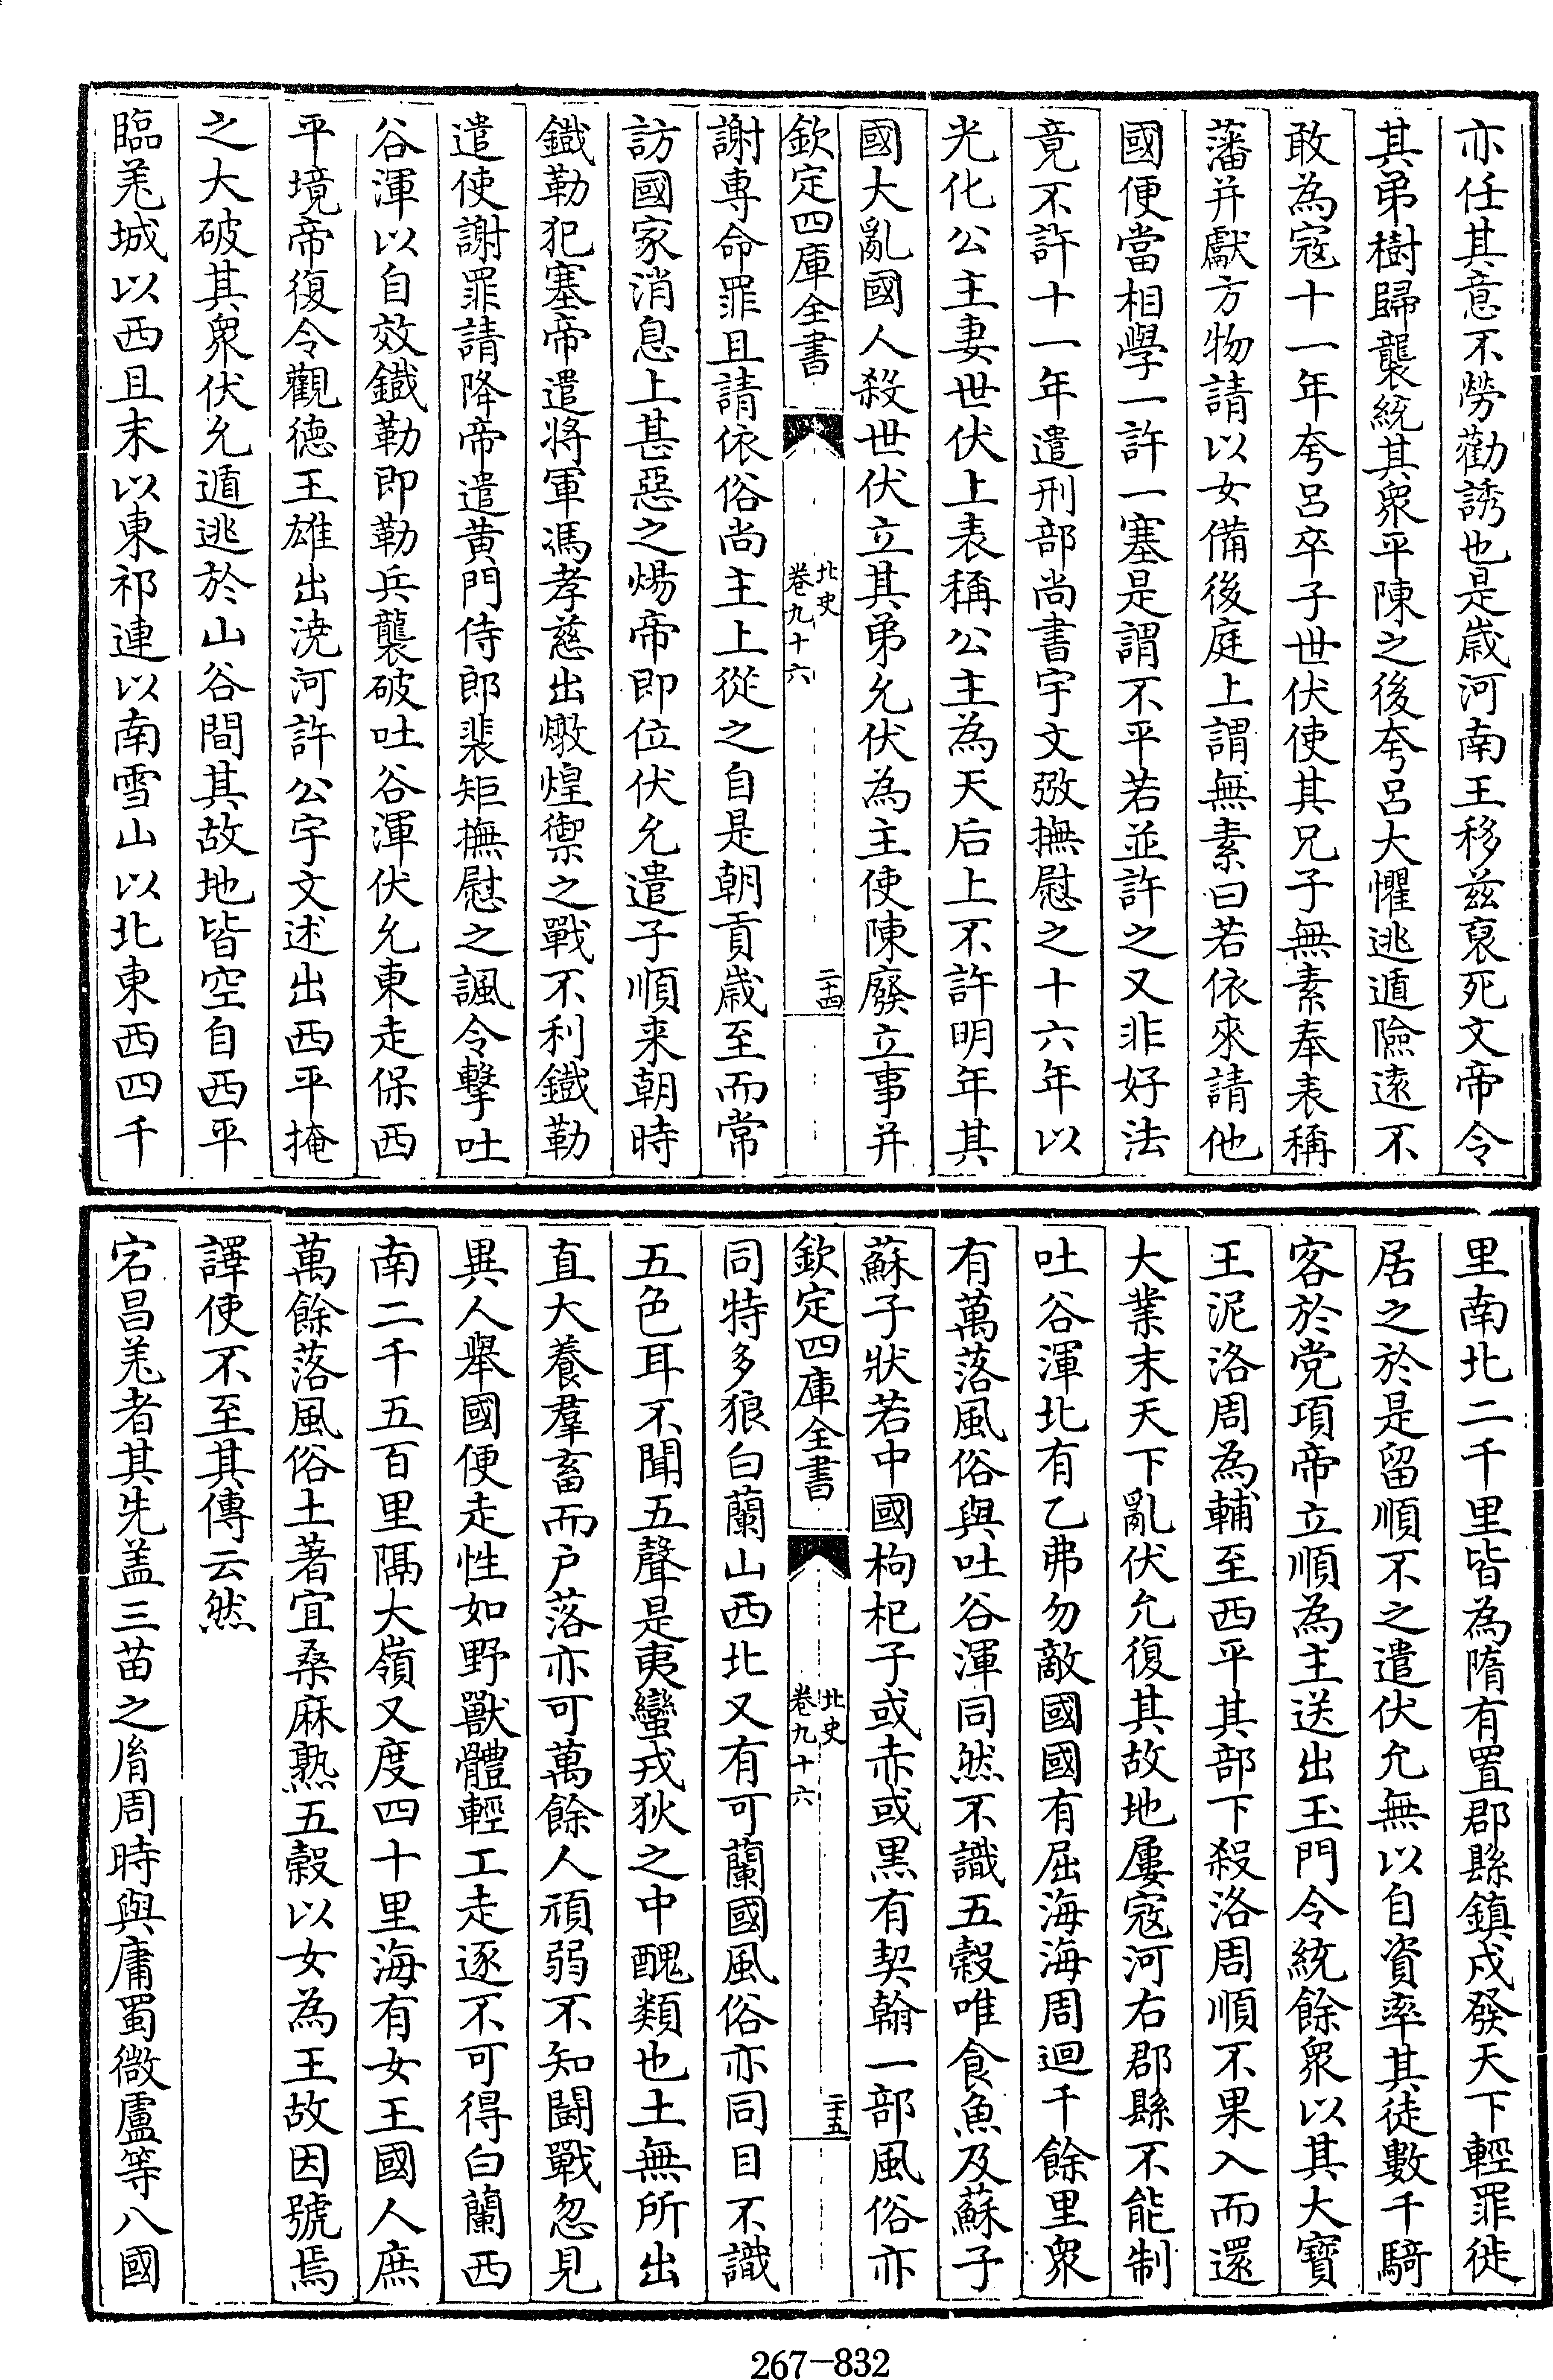 亦任其意不勞勸誘也是歳河南王移兹裒死文帝令
其弟樹歸襲統其衆平陳之後夸呂大懼逃遁險逺不
敢為寇十一年夸呂卒子世伏使其兄子無素奉表稱
藩并獻方物請以女備後庭上謂無素曰若依來請他
國便當相學一許一塞是謂不平若並許之又非好法
竟不許十一年遣刑部尚書宇文㢸撫慰之十六年以
光化公主妻世伏上表稱公主為天后上不許明年其
國大亂國人殺世伏立其弟允伏為主使陳廢立事并
欽定四庫全書
北史
卷九十六
二十四
謝專命罪且請依俗尚主上從之自是朝貢歳至而常
訪國家消息上甚惡之煬帝即位伏允遣子順来朝時
鐵勒犯塞帝遣將軍馮孝慈出燉煌禦之戰不利鐵勒
遣使謝罪請降帝遣黄門侍郎裴矩撫慰之諷令擊吐
谷渾以自效鐵勒即勒兵襲破吐谷渾伏允東走保西
平境帝復令觀德王雄出澆河許公宇文述出西平掩
之大破其衆伏允遁逃於山谷間其故地皆空自西平
臨羌城以西且末以東祁連以南雪山以北東西四千
里南北二千里皆為隋有置郡縣鎮戍發天下輕罪徙
居之於是留順不之遣伏允無以自資率其徒數千騎
客於党項帝立順為主送出玉門令統餘衆以其大寶
王泥洛周為輔至西平其部下殺洛周順不果入而還
大業末天下亂伏允復其故地屢寇河右郡縣不能制
吐谷渾北有乙弗勿敵國國有屈海海周迴千餘里衆
有萬落風俗與吐谷渾同然不識五榖唯食魚及蘇子
蘇子狀若中國枸杞子或赤或黒有契翰一部風俗亦
欽定四庫全書
北史
卷九十六
二十五
同特多狼白蘭山西北又有可蘭國風俗亦同目不識
五色耳不聞五聲是夷蠻戎狄之中醜類也土無所出
直大養羣畜而户落亦可萬餘人頑弱不知鬪戰忽見
異人舉國便走性如野獸體輕工走逐不可得白蘭西
南二千五百里隔大嶺又度四十里海有女王國人庶
萬餘落風俗土著宜桑麻熟五榖以女為王故因號焉
譯使不至其傳云然
宕昌羌者其先盖三苗之胤周時與庸蜀微盧等八國
267-832